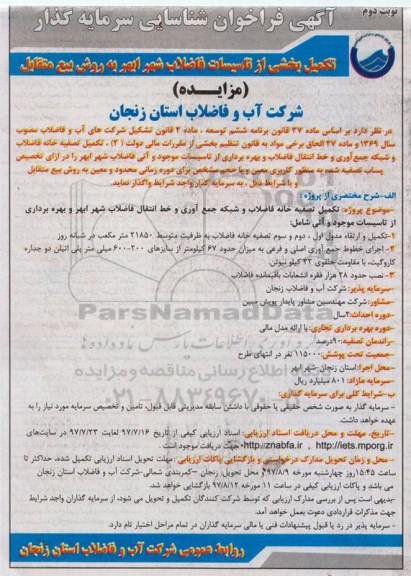 نوبت دوم
آگهی فراخوان شناسایی سرمایه گذار
تکمیل بخشی از تاسیسات فاضلاب شهر ابهر به روش بیع متقابل
(مزایده)
شرکت آب و فاضلاب استان زنجان
در نظر دارد بر اساس ماده ۲۷ قانون برنامه ششم توسعه ، ماده ۲ قانون تشکیل شرکت های آب و فاضلاب مصوب
سال ۱۳۶۹ و ماده ۲۷ الحاق برخی مواد به قانون تنظیم بخشی از مقررات مالی دولت (۲) ، تکمیل تصفیه خانه فاضلاب
و شبکه جمع آوری و خط انتقال فاضلاب و بهره برداری از تاسیسات موجود و آتی فاضلاب شهر ابهر را در ازای تخصیص
پساب تصفیه شده به منظور کاربری معین ویا حجم مشخص برای دوره زمانی محدود و معین به روش بیع متقابل
و با شرایط ذیل ، به سرمایه گذار واجد شرایط واگذار نماید.
الف-شرح مختصری از پروژه:
-موضوع پروژه: تکمیل تصفیه خانه فاضلاب و شبکه جمع آوری و خط انتقال فاضلاب شهر ابهر و بهره برداری
از تاسیسات موجود و آتی شامل:
۱-تکمیل و ارتقاء مدول اول ، دوم و سوم تصفیه خانه فاضلاب به ظرفیت متوسط ۲۱۸۵۰ متر مکعب در شبانه روز
۲- اجرای خطوط جمع آوری اصلی و فرعی به میزان حدود ۶۷ کیلومتر از سایزهای ۲۰۰-۶۰۰ میلی متر پلی اتیلن دو جداره
کاروگیت، با مقاومت حلقوی ۳۲ کیلو نیوتن.
۳- نصب حدود ۲۸ هزار فقره انشعابات باقیمانده فاضلاب
-سرمایه پذیر: شرکت آب و فاضلاب زنجان
-مشاور: شرکت مهندسین مشاور پایدار پویش مبین
-دوره احداث: ۲سال
-دوره بهره برداری تجاری: با ارائه مدل مالی
-راندمان تصفیه: ۹۰درصد
-جمعیت تحت پوشش: ۱۱۵۰۰۰ نفر در انتهای طرح
-محل اجرا: استان زنجان شهر ابهر
-سرمایه مازاد: ۸۰۱ میلیارد ریال
ب-شرایط کلی برای سرمایه گذاری:
- سرمایه گذار به صورت شخص حقیقی یا حقوقی با داشتن سابقه مدیریتی قابل قبول، تامین و تخصیص سرمایه مورد نیاز را به
عهده خواهد داشت.
-تاریخ، مهلت و محل دریافت اسناد ارزیابی: اسناد ارزیابی کیفی از تاریخ ۹۷/۷/۱۶ لغایت ۹۷/۷/۲۳ در سایت‌های
http://iets.mporg.ir , http://znabfa.ir جهت دریافت موجود است.
- محل و زمان تحویل مدارک درخواستی و بازگشایی پاکات ارزیابی: مهلت تحویل اسناد ارزیابی تکمیل شده، حداکثر تا
ساعت ۱۵:۴۵ روز چهارشنبه مورخه ۹۷/۸/۹ محل تحویل: زنجان –کمربندی شمالی-شرکت آب و فاضلاب استان زنجان
می باشد و پاکات ارزیابی کیفی در ساعت ۱۱ مورخه ۹۷/۸/۱۲ بازگشایی خواهد شد.
-بدیهی است پس از بررسی مدارک ارزیابی که توسط شرکت کنندگان تکمیل و تحویل می شود، از سرمایه گذاران واجد شرایط
جهت مذکرات قراردادی دعوت بعمل خواهد آمد.
- سرمایه پذیر در رد یا قبول پیشنهادات فنی یا مالی سرمایه گذاران در تمام مراحل اختیار تام دارد.
روابط عمومی شرکت آب و فاضلاب استان زنجان
ParsNamadData
۰۲۱-۸۸۳۴۹۶۷۰